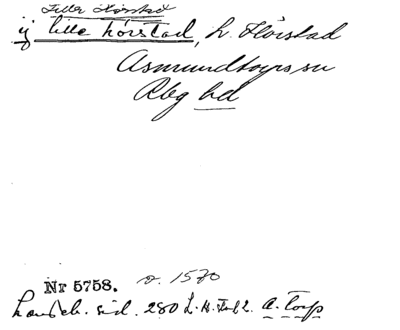 Lille Hørstad
ij lille hørstad, L. Hörstad
Asmundtorps sn
Rbg hd
Nr 5758. o. 1570
Landeb. sid. 280 L. A. Torp